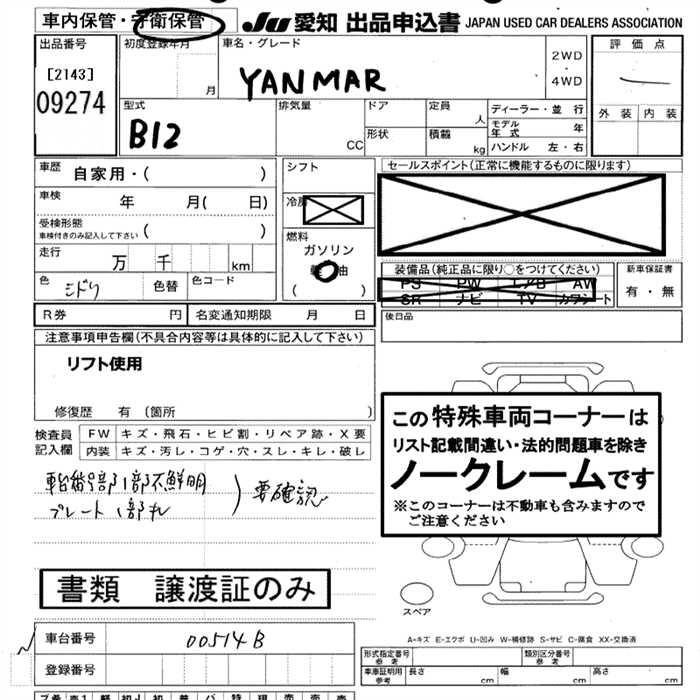 車内保管・守衛保管
JU 愛知 出品申込書 JAPAN USED CAR DEALERS ASSOCIATION
出品番号
[2143]
09274
初度登録年月
月
車名・グレード
YANMAR
2WD
・
4WD
評価点
外装 内装
型式
B12
排気量
CC
ドア
形状
定員
人
積載
kg
ディーラー・並 行
モデル年式 年
ハンドル 左・右
車歴
自家用・( )
車検
年 月( 日)
受検形態
車検付きのみ記入して下さい ( )
走行
万 千 km
色
ミドリ
色替
色コード
シフト
冷房
燃料
ガソリン
軽油
( )
セールスポイント(正常に機能するものに限ります)
装備品(純正品に限り○をつけてください)
PS PW エアB AW
SR ナビ TV カワシート
新車保証書
有・無
R券 円
名変通知期限 月 日
後日品
注意事項申告欄(不具合内容等は具体的に記入して下さい)
リフト使用
修復歴 有(箇所 )
検査員記入欄
FW キズ・飛石・ヒビ割・リペア跡・X要
内装 キズ・汚レ・コゲ・穴・スレ・キレ・破レ
車台番号部1部不鮮明
プレート1部キレ
)要確認
この特殊車両コーナーは
リスト記載間違い・法的問題車を除き
ノークレームです
※このコーナーは不動車も含みますので
ご注意ください
書類 譲渡証のみ
スペア
A-キズ E-エクボ U-凹み W-補修跡 S-サビ C-腐食 XX-交換済
車台番号
00514B
登録番号
形式指定番号
参考
類別区分番号
参考
車庫証明用
参考
長さ
幅
高さ